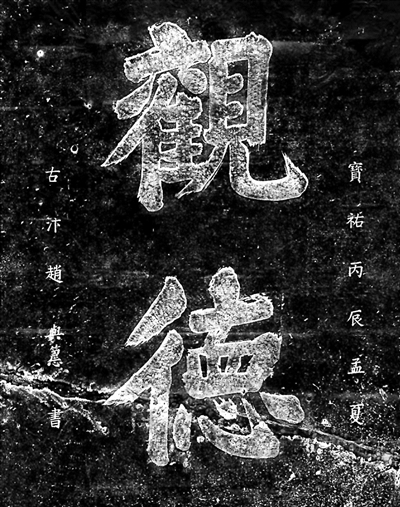 寶祐丙辰孟夏
觀德
古汴趙與𥲅書